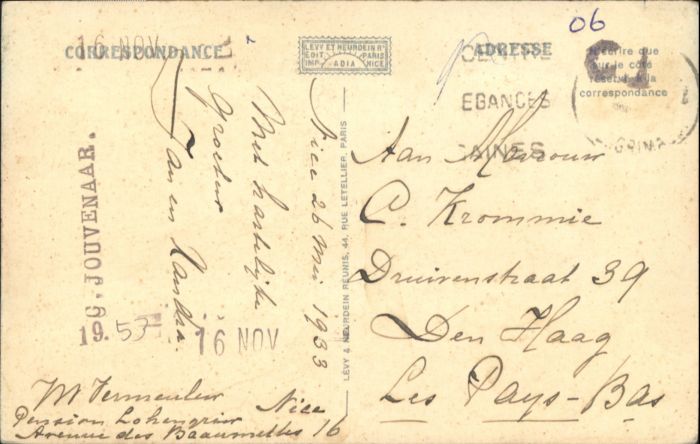 16 NOV
CORRESPONDANCE
LEVY ET NEURDEIN Rs
EDIT PARIS
IMP. ADIA NICE
ADRESSE
06
N'écrire que
sur le côté
réservé à la
correspondance
EGANCES
AINES
Nice 26 Mei 1933
Met hartelijke
Groeten
Jan en
G. JOUVENAAR.
19.53
16 NOV
LÉVY & NEURDEIN RÉUNIS, 44, RUE LETELLIER, PARIS
Aan Mevrouw
C. Krommie
Druivenstraat 39
Den Haag
Les Pays-Bas
M Vermeulen
Pension Lohengrin Nice
Avenue des Baaumettes 16